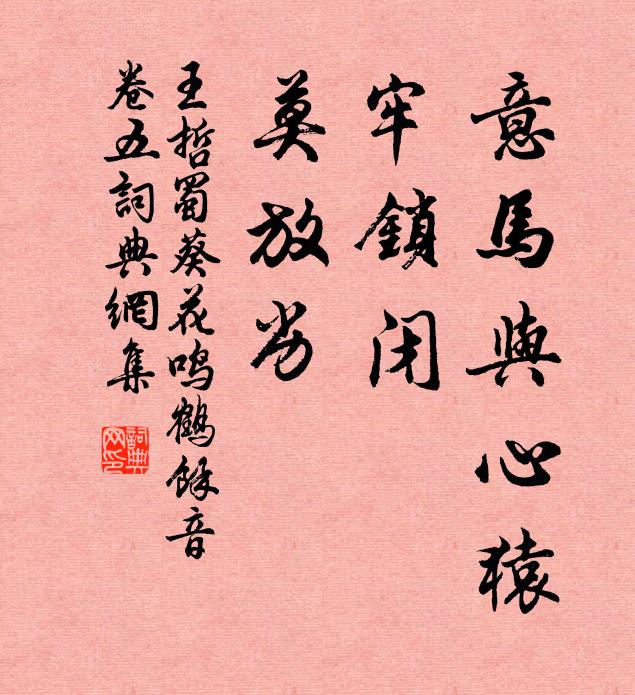 意馬與心猿
牢鎖閉
莫放劣
王哲蜀葵花鳴鶴餘音
卷五詞典網集
詞典
网印